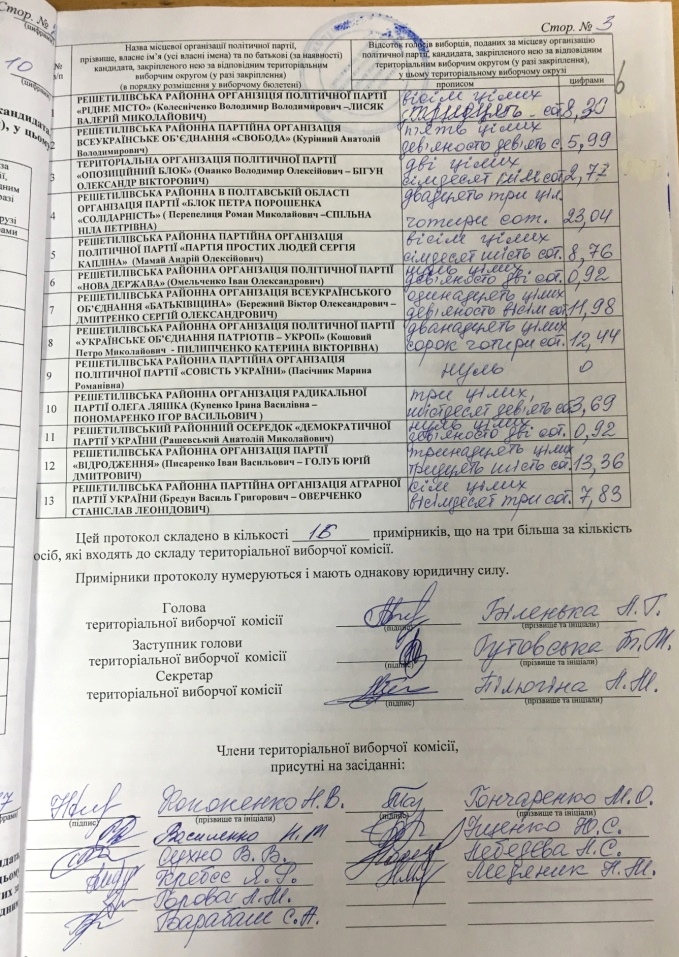 Стор. №
(цифрами)
10
(цифрами)
Стор. № 3
№
з/п
Назва місцевої організації політичної партії,
прізвище, власне ім’я (усі власні імена) та по батькові (за наявності)
кандидата, закріпленого нею за відповідним територіальним
виборчим округом (у разі закріплення)
(в порядку розміщення у виборчому бюлетені)
Відсоток голосів виборців, поданих за місцеву організацію
політичної партії, кандидата, закріпленого нею за відповідним
територіальним виборчим округом (у разі закріплення),
у цьому територіальному виборчому окрузі
прописом
цифрами
6
1
РЕШЕТИЛІВСЬКА РАЙОННА ОРГАНІЗІЦІЯ ПОЛІТИЧНОЇ ПАРТІЇ
«РІДНЕ МІСТО» (Колесніченко Володимир Володимирович –ЛИСЯК
ВАЛЕРІЙ МИКОЛАЙОВИЧ)
вісім цілих
тридцять сот.
8,30
2
РЕШЕТИЛІВСЬКА РАЙОННА ПАРТІЙНА ОРГАНІЗАЦІЯ
ВСЕУКРАЇНСЬКЕ ОБ’ЄДНАННЯ «СВОБОДА» (Курінний Анатолій
Володимирович)
п'ять цілих
дев'яносто дев'ять с.
5,99
3
ТЕРИТОРІАЛЬНА ОРГАНІЗАЦІЯ ПОЛІТИЧНОЇ ПАРТІЇ
«ОПОЗИЦІЙНИЙ БЛОК» (Онанко Володимир Олексійович – БІГУН
ОЛЕКСАНДР ВІКТОРОВИЧ)
дві цілих
сімдесят сім сот.
2,77
4
РЕШЕТИЛІВСЬКА РАЙОННА В ПОЛТАВСЬКІЙ ОБЛАСТІ
ОРГАНІЗАЦІЯ ПАРТІЇ «БЛОК ПЕТРА ПОРОШЕНКА
«СОЛІДАРНІСТЬ» ( Перепелиця Роман Миколайович –СПІЛЬНА
НІЛА ПЕТРІВНА)
двадцять три ціл.
чотири сот.
23,04
5
РЕШЕТИЛІВСЬКА РАЙОННА ПАРТІЙНА ОРГАНІЗАЦІЯ
ПОЛІТИЧНОЇ ПАРТІЇ «ПАРТІЯ ПРОСТИХ ЛЮДЕЙ СЕРГІЯ
КАПЛІНА» (Мамай Андрій Олексійович)
вісім цілих
сімдесят шість сот.
8,76
6
РЕШЕТИЛІВСЬКА РАЙОННА ОРГАНІЗАЦІЯ ПОЛІТИЧНОЇ ПАРТІЇ
«НОВА ДЕРЖАВА» (Омельченко Іван Олександрович)
нуль цілих
дев'яносто дві сот.
0,92
7
РЕШЕТИЛІВСЬКА РАЙОННА ОРГАНІЗАЦІЯ ВСЕУКРАЇНСЬКОГО
ОБ’ЄДНАННЯ «БАТЬКІВЩИНА» (Бережний Віктор Олександрович –
ДМИТРЕНКО СЕРГІЙ ОЛЕКСАНДРОВИЧ)
одинадцять цілих
дев'яносто вісім сот.
11,98
8
РЕШЕТИЛІВСЬКА РАЙОННА ОРГАНІЗАЦІЯ ПОЛІТИЧНОЇ ПАРТІЇ
«УКРАЇНСЬКЕ ОБ’ЄДНАННЯ ПАТРІОТІВ – УКРОП» (Кошовий
Петро Миколайович - ПИЛИПЧЕНКО КАТЕРИНА ВІКТОРІВНА)
дванадцять цілих
сорок чотири сот.
12,44
9
РЕШЕТИЛІВСЬКА РАЙОННА ПАРТІЙНА ОРГАНІЗАЦІЯ
ПОЛІТИЧНОЇ ПАРТІЇ «СОВІСТЬ УКРАЇНИ» (Пасічник Марина
Романівна)
нуль
0
10
РЕШЕТИЛІВСЬКА РАЙОННА ОРГАНІЗАЦІЯ РАДИКАЛЬНОЇ
ПАРТІЇ ОЛЕГА ЛЯШКА (Купенко Ірина Василівна –
ПОНОМАРЕНКО ІГОР ВАСИЛЬОВИЧ )
три цілих,
шістдесят дев'ять сот.
3,69
11
РЕШЕТИЛІВСЬКИЙ РАЙОННИЙ ОСЕРЕДОК «ДЕМОКРАТИЧНОЇ
ПАРТІЇ УКРАЇНИ (Рашевський Анатолій Миколайович)
нуль цілих
дев'яносто дві сот.
0,92
12
РЕШЕТИЛІВСЬКА РАЙОННА ОРГАНІЗАЦІЯ ПАРТІЇ
«ВІДРОДЖЕННЯ» (Писаренко Іван Васильович – ГОЛУБ ЮРІЙ
ДМИТРОВИЧ)
тринадцять цілих
тридцять шість сот.
13,36
13
РЕШЕТИЛІВСЬКА РАЙОННА ПАРТІЙНА ОРГАНІЗАЦІЯ АГРАРНОЇ
ПАРТІЇ УКРАЇНИ (Бредун Василь Григорович – ОВЕРЧЕНКО
СТАНІСЛАВ ЛЕОНІДОВИЧ)
сім цілих
вісімдесят три сот.
7,83
Цей протокол складено в кількості примірників, що на три більша за кількість
осіб, які входять до складу територіальної виборчої комісії.
Примірники протоколу нумеруються і мають однакову юридичну силу.
Голова
територіальної виборчої комісії
(підпис)
Біленька Л.Г.
(прізвище та ініціали)
Заступник голови
територіальної виборчої комісії
(підпис)
Гутовська Т.М.
(прізвище та ініціали)
Секретар
територіальної виборчої комісії
(підпис)
Пілюгіна Л.М.
(прізвище та ініціали)
Члени територіальної виборчої комісії,
присутні на засіданні:
(підпис)
Кононенко Н.В.
(прізвище та ініціали)
(підпис)
Гончаренко М.О.
(прізвище та ініціали)
Василенко Н.М
Іщенко Ю.С.
Сухно В.В.
Лебедєва Н.С.
Кребес Я.Ф.
Медяник Л.М.
Л.М.
Барабаш С.А.